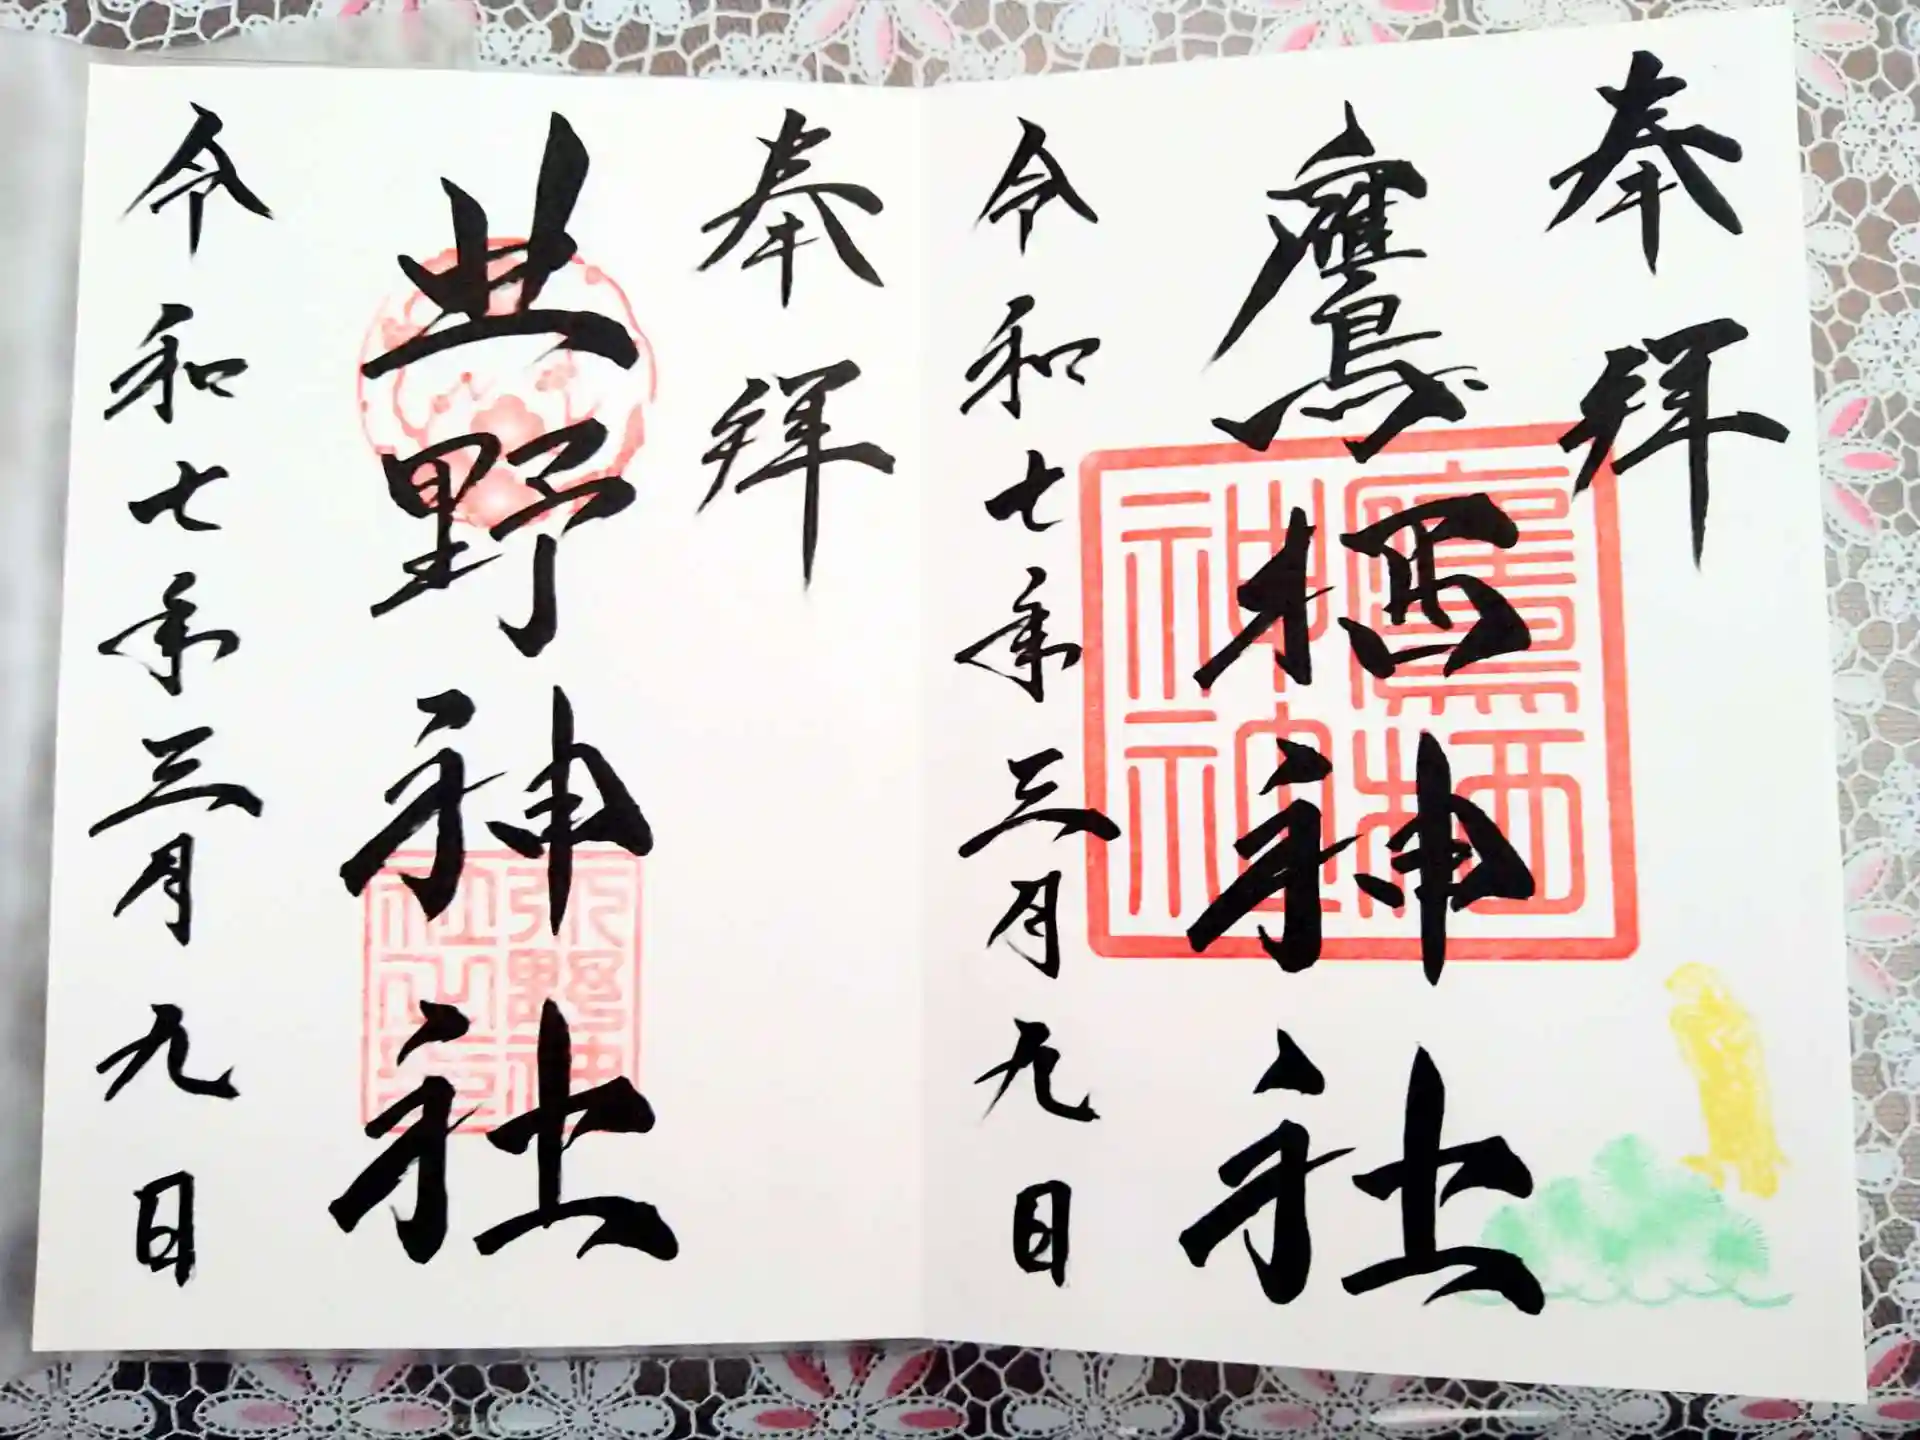 奉拝
鷹栖神社
令和七年三月九日
鷹栖
神社
奉拝
北野神社
令和七年三月九日
北野神
社之印